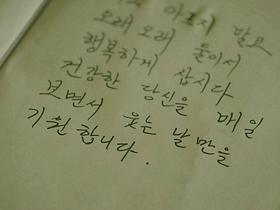 아프지 말고
오래오래 둘이서
행복하게 삽시다
건강한 당신을 매일
보면서 웃는 날만을
기원합니다.